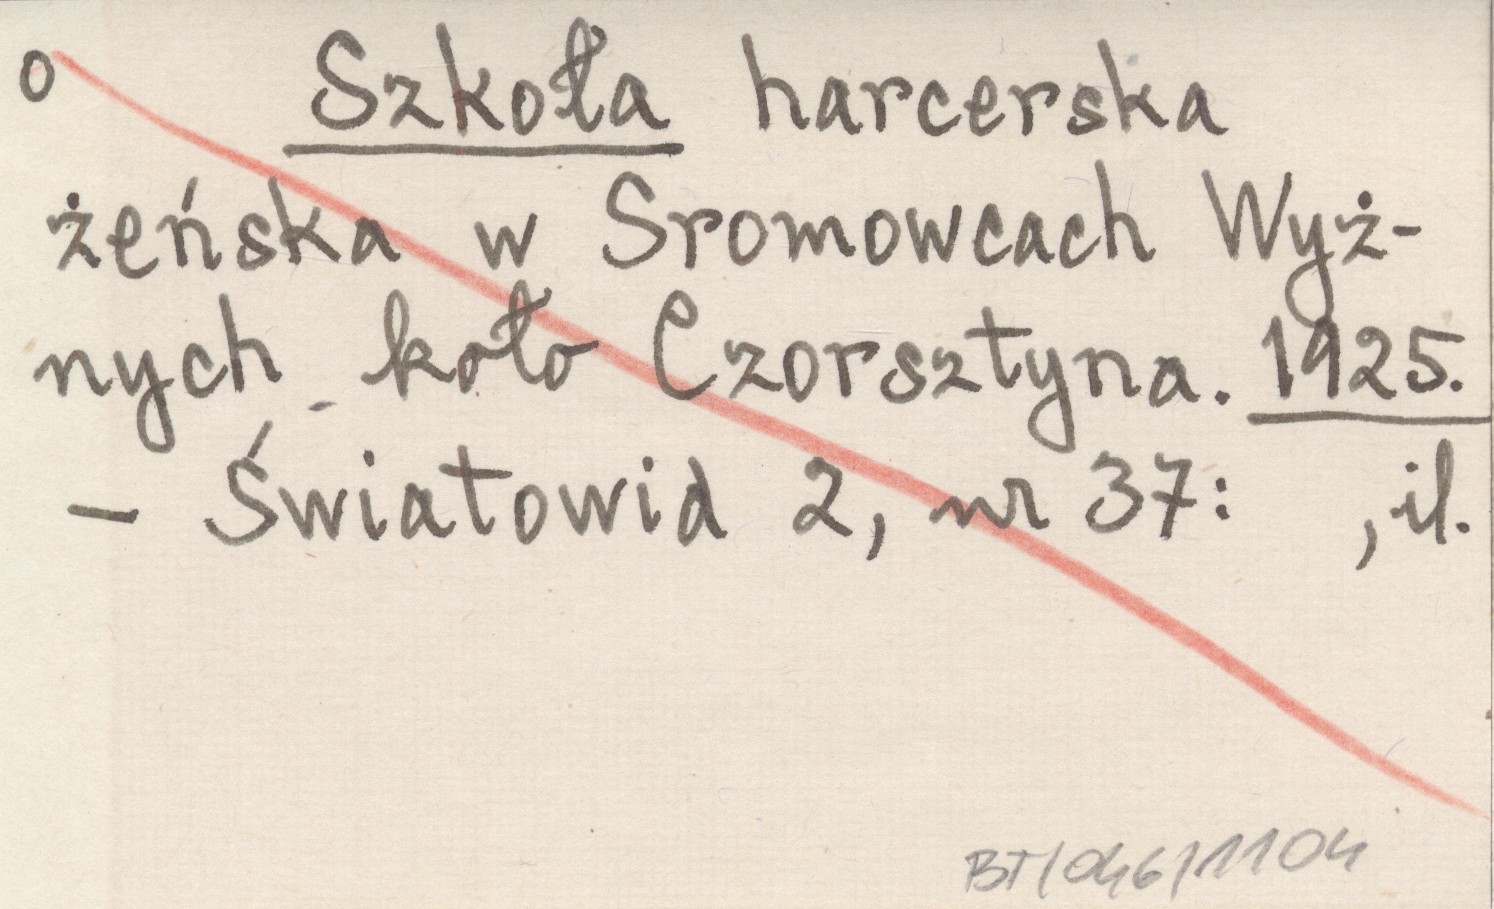 o Szkoła harcerska
żeńska w Sromowcach Wyż-
nych koło Czorsztyna. 1925.
- Światowid 2, nr 37: , il.
BT/046/1104